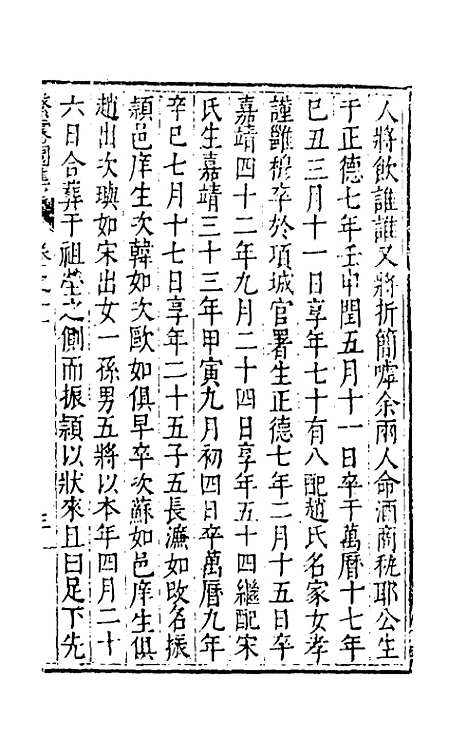 人將飲誰誰又將折簡嘑余兩人命酒商秇耶公生
于正德七年壬申閏五月十一日卒于萬曆十七年
巳丑三月十一日享年七十有八配趙氏名家女孝
謹雖㮣卒於項城官署生正德七年二月十五日卒
嘉靖四十二年九月二十四日享年五十四繼配宋
氏生嘉靖三十三年甲寅九月初四日卒萬曆九年
辛巳七月十七日享年二十五子五長濂如改名振
穎邑庠生次韓如次歐如俱早卒次蘇如邑庠生俱
趙出次璵如宋出女一孫男五將以本年四月二十
六日合葬于祖塋之側而振穎以狀來且曰足下先
園集 卷之十